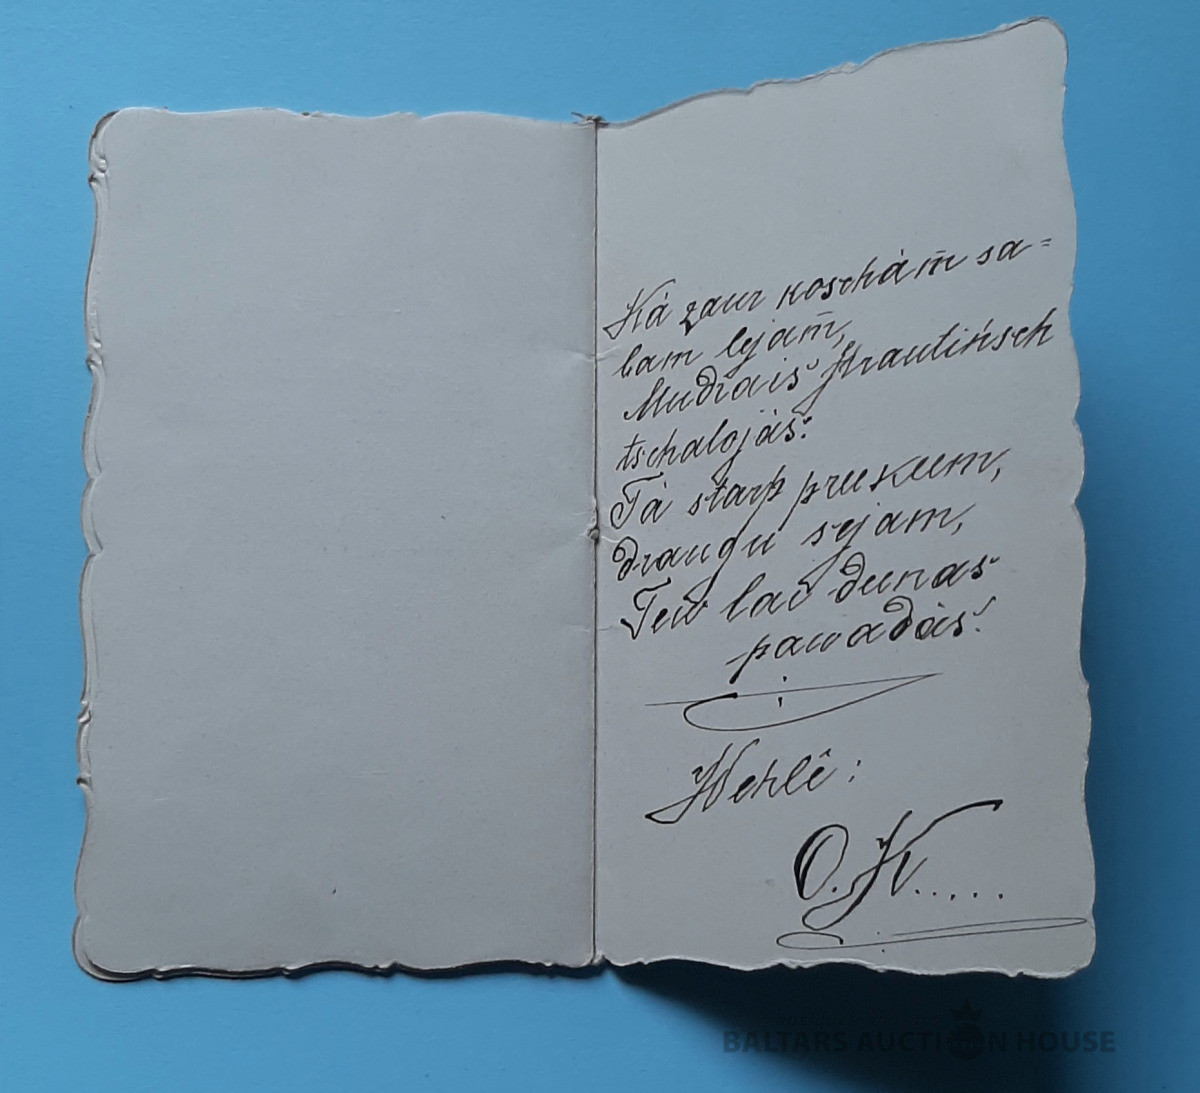 Kà zaur koschàm̄ sa=
lam lejam̄,
Mudrais strautińsch
tschalojàs:
Tà starp prukum,
draugu sejam,
Tew lai dunas
pawadàs!
Wehlê:
O. K.....
BALTARS AUCTION HOUSE